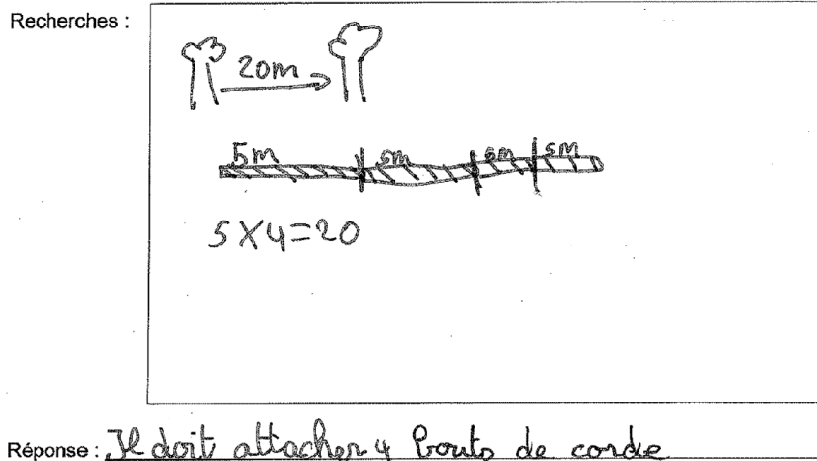 Recherches :
20m
5m 5m 5m 5m
5×4=20
Réponse : Il doit attacher 4 bouts de corde